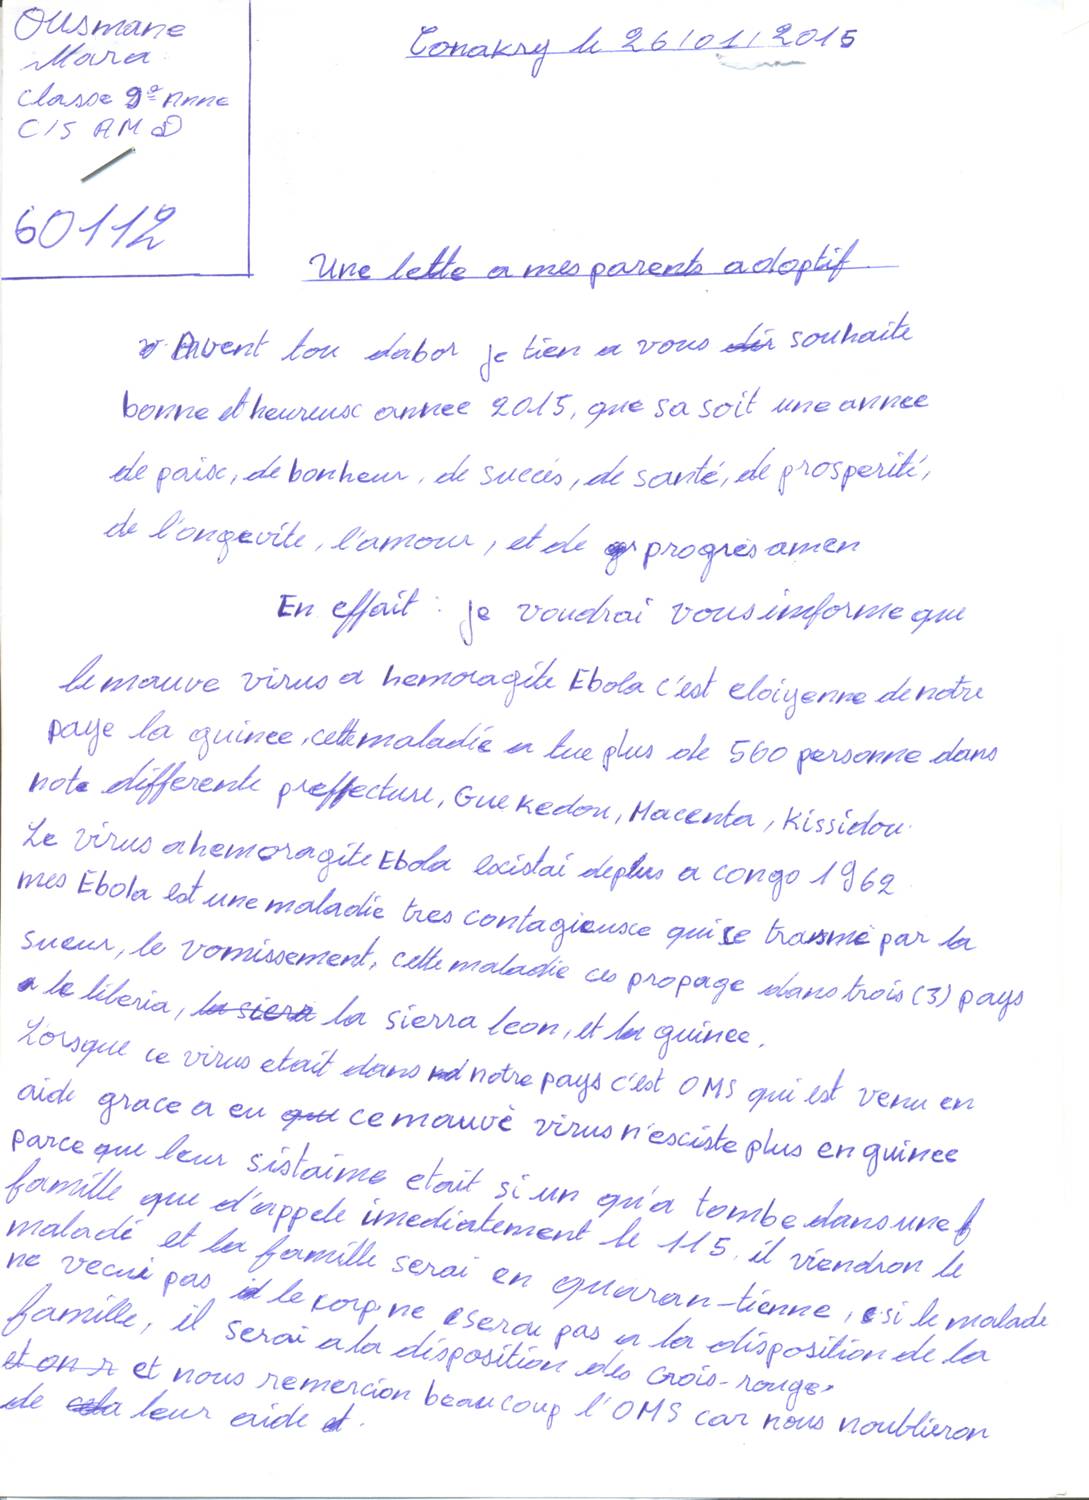 Ousmane
Mara
Classe 9e Anne
C/S AMD
60112
Conakry le 26/01/2015
Une lette a mes parents adoptif
Avent tou dabor je tien a vous dir souhaite
bonne et heureux annee 2015, que sa soit une annee
de paix, de bonheur, de succès, de santé, de prosperité,
de l'ongevite, l'amour, et de gr progrès amen
En effait : je voudrai vous imforme que
le mauve virus a hemoragite Ebola c'est eloiyenne de notre
paye la guinee, cette maladie a tue plus de 560 personne dans
note differente preffecture, Guekedou, Macenta, Kissidou.
Le virus a hemoragite Ebola existai deplus a congo 1962
mes Ebola est une maladie tres contagieusce qui ce transme par la
sueur, le vomissement, cette maladie ces propage dans trois (3) pays
le liberia, la siera la sierra leon, et la guinee.
Lorsque ce virus etait dans notre pays c'est OMS qui est venu en
aide grace a eu que ce mauvè virus n'esciste plus en guinee
parce que leur sistaime etait si un qu'a tombe dans une f
famille que d'appele imediatement le 115. il viendron le
maladé et la famille serai en quaran-tienne, si le malade
ne vecui pas le corp ne serai pas a la disposition de la
famille, il serai a la disposition des Crois-rouge,
et on r et nous remercion beaucoup l'OMS car nous noublieron
de leur aide et.